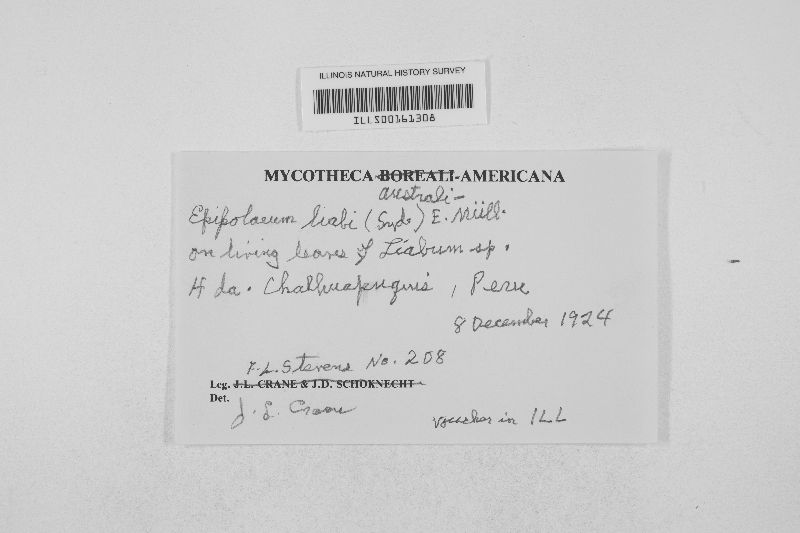 ILLINOIS NATURAL HISTORY SURVEY
ILLS00161308
MYCOTHECA BOREALI-AMERICANA
australi-
Epipolaeum liabi (Syd.) E. Müll.
on living leaves of Liabum sp.
Hda. Challhuapuquis, Peru
8 December 1924
F.L. Stevens No. 208
Leg. J.L. CRANE & J.D. SCHOKNECHT
Det.
J. L. Crane
voucher in ILL